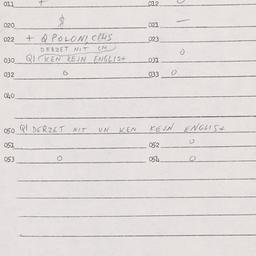 011 + 012 0
020 $ 021 —
022 + Q POLONI, CPHS 023
DERZET NIT UN
030 Q1 KEN KEJN ENGLIS+ 031 0
032 0 033 0
040
050 Q1 DERZET NIT UN KEN KEJN ENGLIS+
051 052 0
053 0 054 0